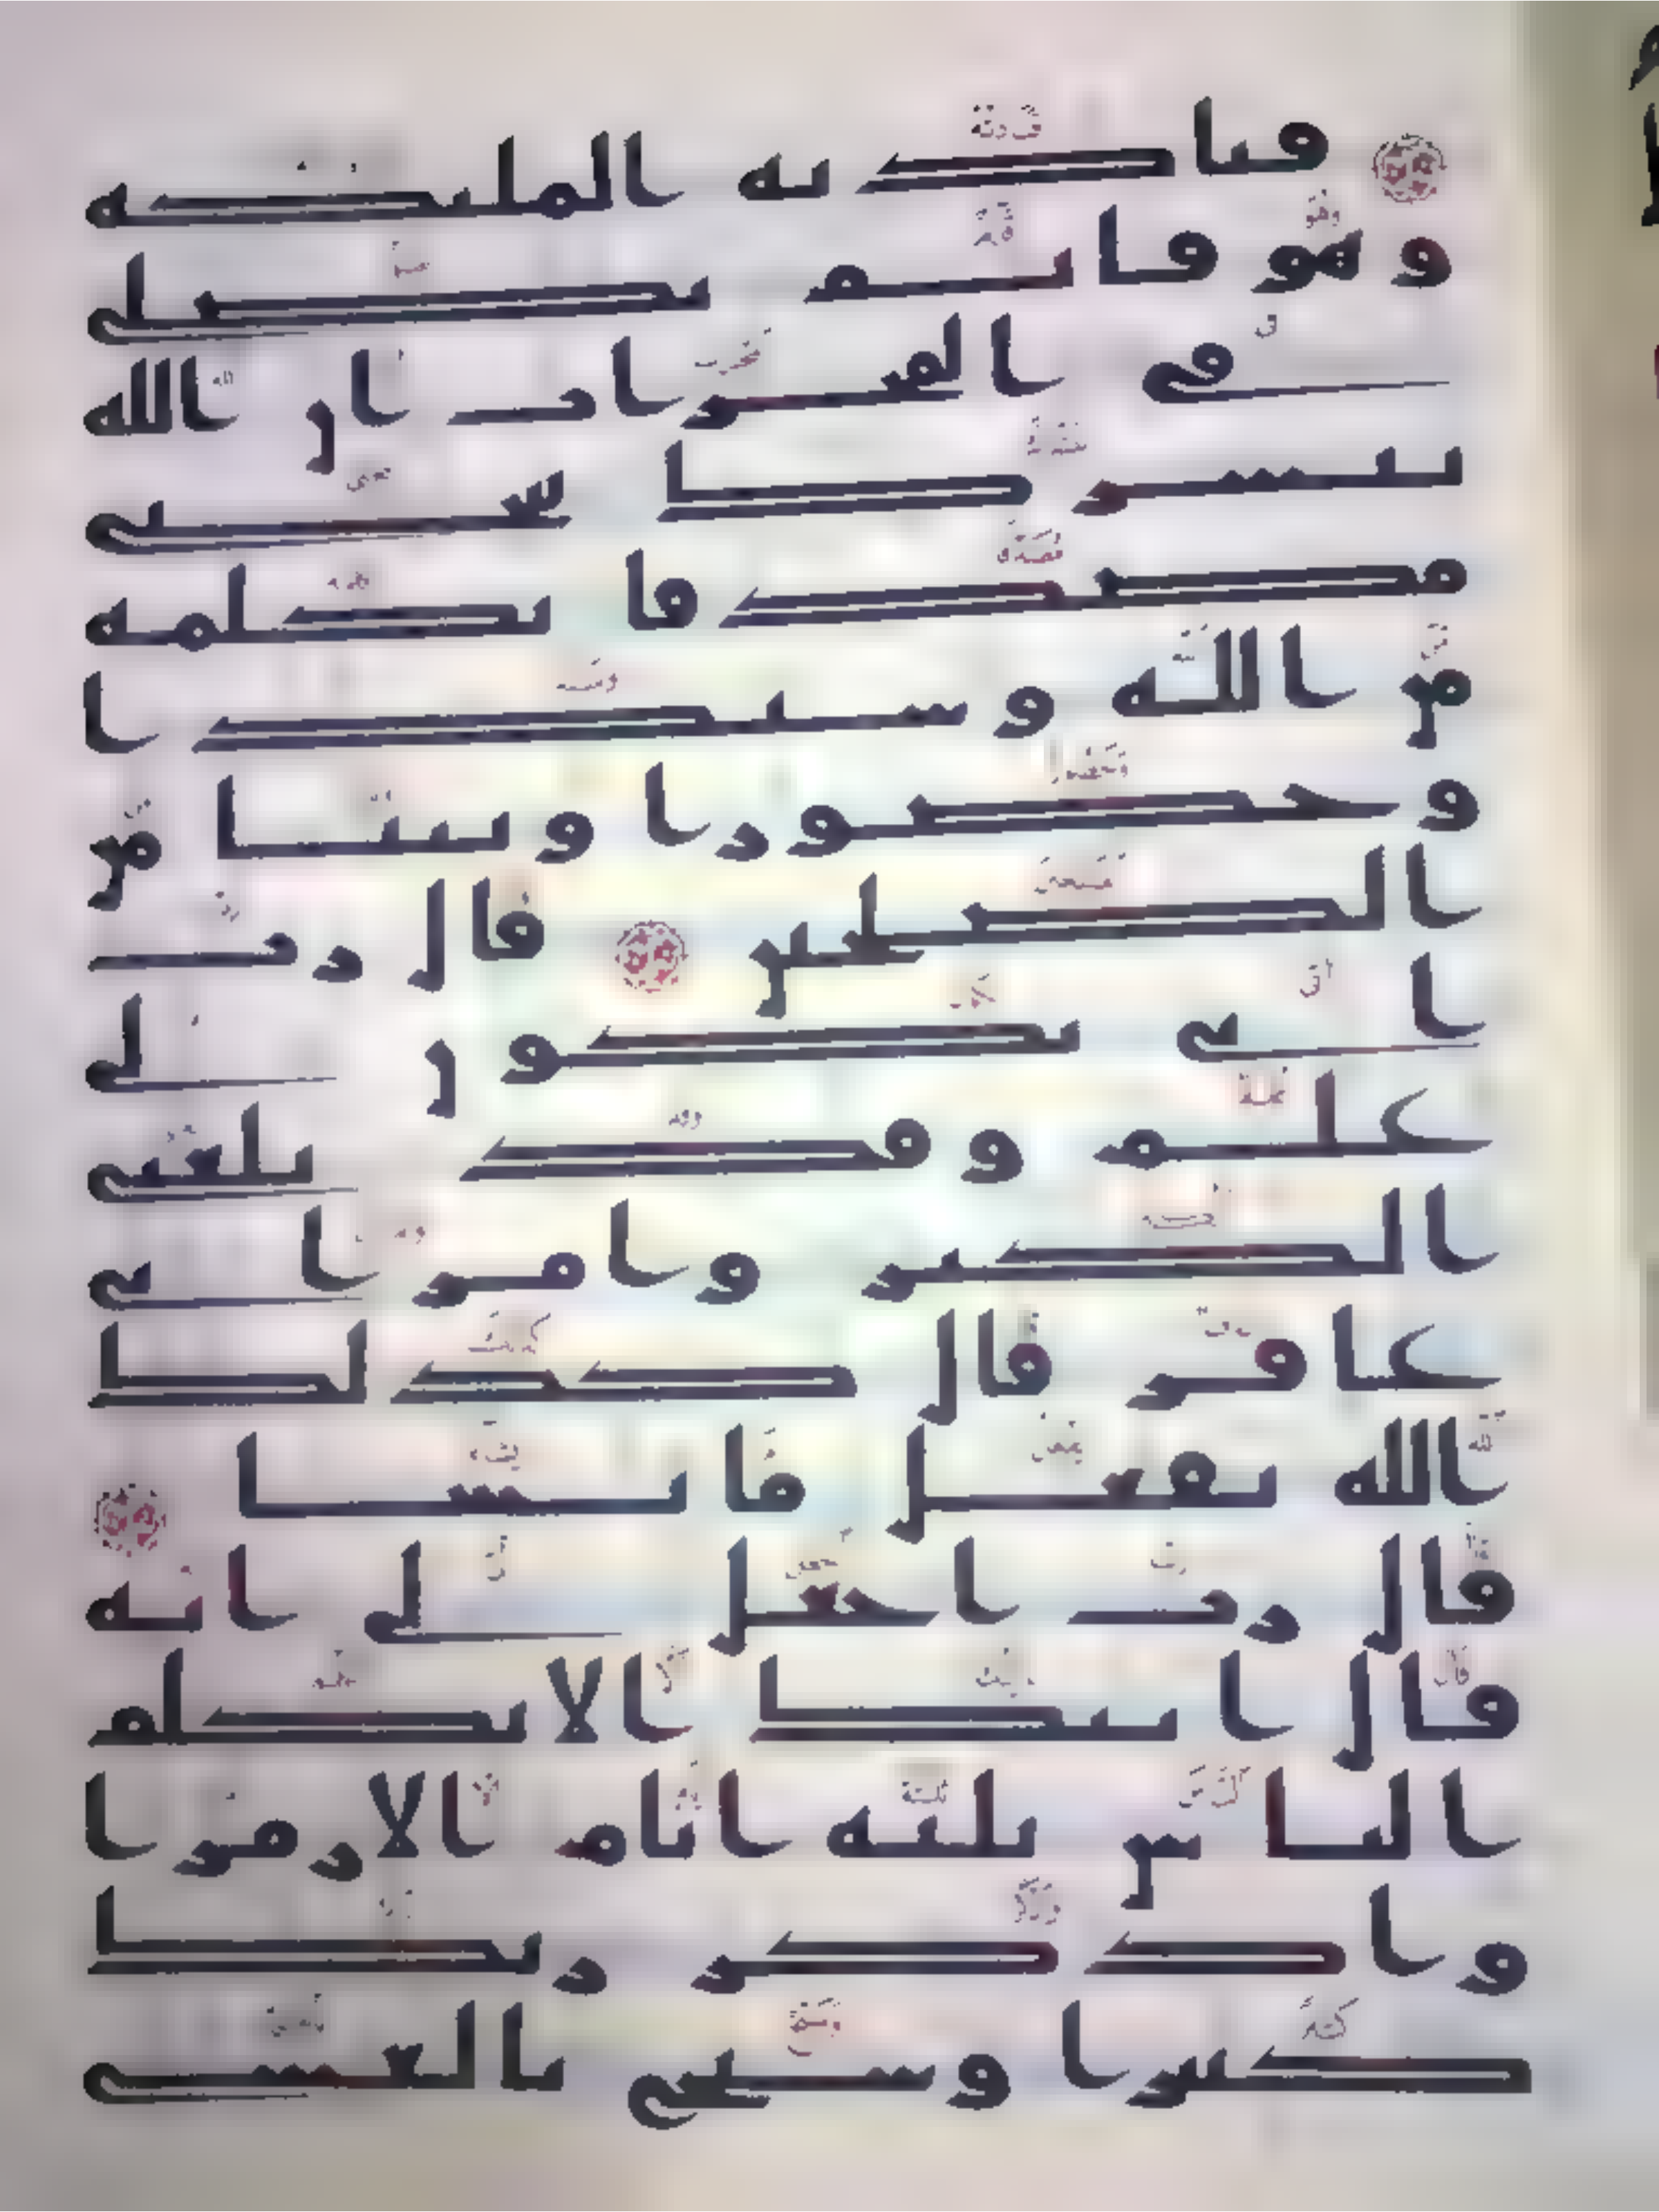 فنادته الملئكه
وهو قائم يصلى
فى المحراب ان الله
يبشرك بيحيى
مصدقا بكلمه
من الله وسيدا
وحصورا ونبيا من
الصلحين قال رب
انى يكون لى
غلم وقد بلغنى
الكبر وامراتى
عاقر قال كذلك
الله يفعل ما يشا
قال رب اجعل لى ايه
قال ايتك الا تكلم
الناس ثلثه ايام الا رمزا
واذكر ربك
كثيرا وسبح بالعشى